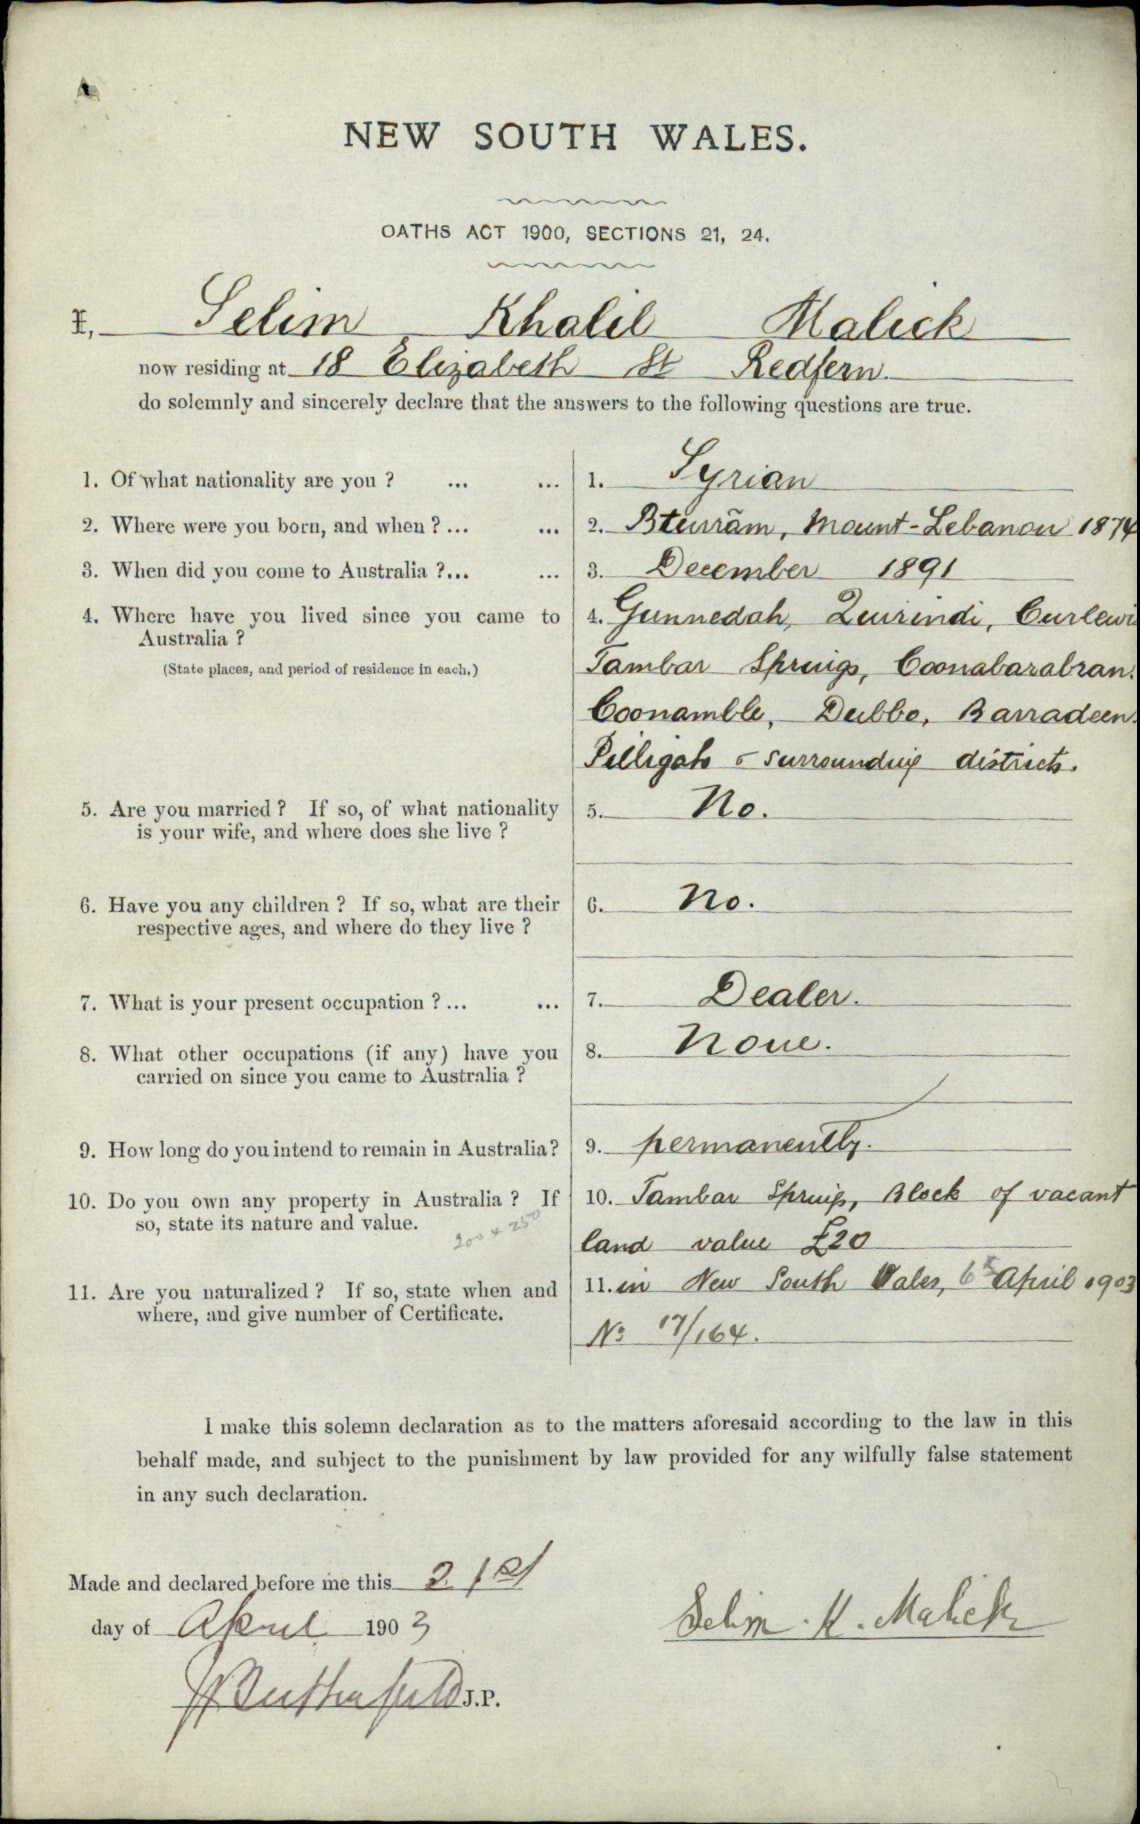 NEW SOUTH WALES.
OATHS ACT 1900, SECTIONS 21, 24.
I, Selim Khalil Malick
now residing at 18 Elizabeth St Redfern.
do solemnly and sincerely declare that the answers to the following questions are true.
1. Of what nationality are you ? ... ... 1. Syrian
2. Where were you born, and when ? ... ... 2. Bteurām, Mount-Lebanon 1874
3. When did you come to Australia ?... ... 3. December 1891
4. Where have you lived since you came to 4. Gunnedah, Quirindi, Curlewi
Australia ?
(State places, and period of residence in each.) Tambar Springs, Coonabarabran.
Coonamble, Dubbo, Barradeen.
Pilligah & surrounding districts.
5. Are you married ? If so, of what nationality 5. No.
is your wife, and where does she live ?
6. Have you any children ? If so, what are their 6. No.
respective ages, and where do they live ?
7. What is your present occupation ? ... ... 7. Dealer.
8. What other occupations (if any) have you 8. None.
carried on since you came to Australia ?
9. How long do you intend to remain in Australia? 9. permanently.
10. Do you own any property in Australia ? If 10. Tambar Springs, Block of vacant
so, state its nature and value. 200 x 250 land value £20
11. Are you naturalized ? If so, state when and 11. in New South Wales, 6th April 1903
where, and give number of Certificate. No 17/164.
I make this solemn declaration as to the matters aforesaid according to the law in this
behalf made, and subject to the punishment by law provided for any wilfully false statement
in any such declaration.
Made and declared before me this 21st
day of April 1903
Selim. K. Malick
Butterfield J.P.